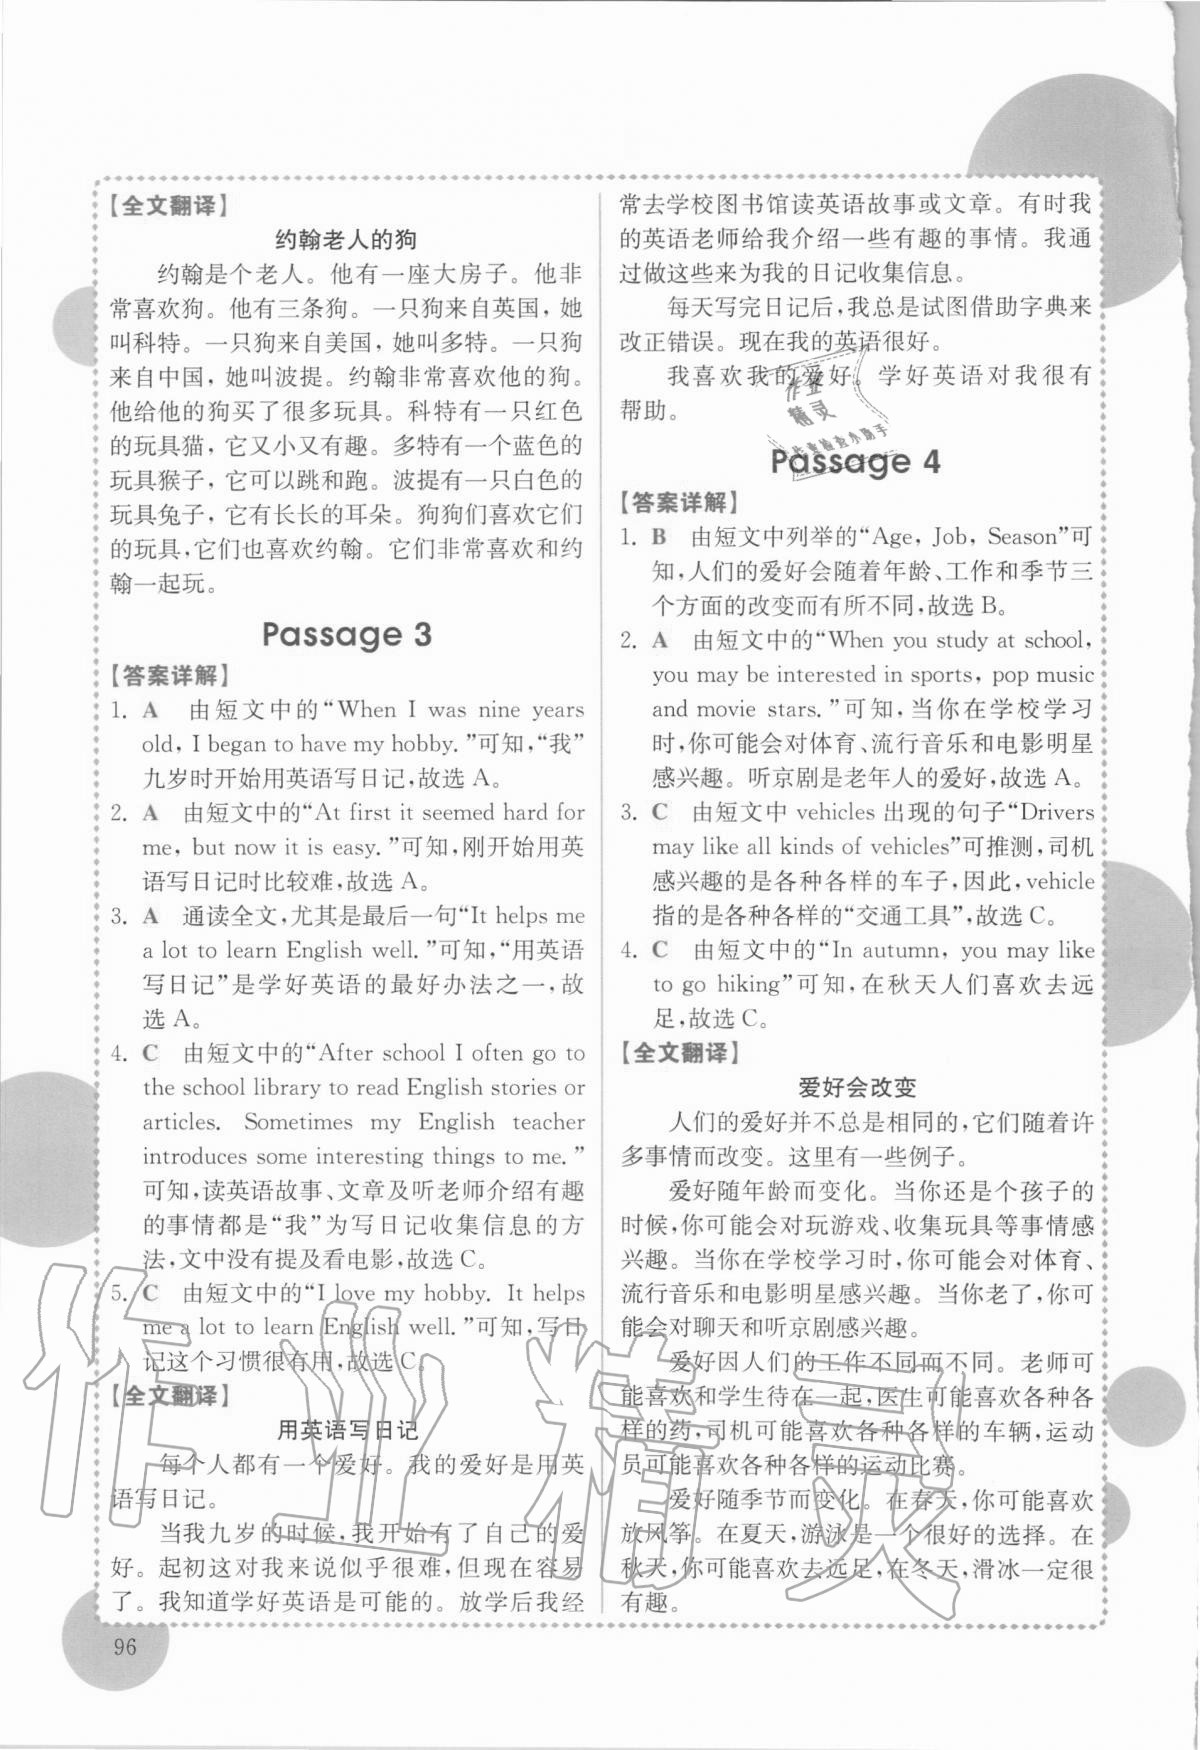 【全文翻译】
约翰老人的狗
约翰是个老人。他有一座大房子。他非
常喜欢狗。他有三条狗。一只狗来自英国，她
叫科特。一只狗来自美国，她叫多特。一只狗
来自中国，她叫波提。约翰非常喜欢他的狗。
他给他的狗买了很多玩具。科特有一只红色
的玩具猫，它又小又有趣。多特有一个蓝色的
玩具猴子，它可以跳和跑。波提有一只白色的
玩具兔子，它有长长的耳朵。狗狗们喜欢它们
的玩具，它们也喜欢约翰。它们非常喜欢和约
翰一起玩。
Passage 3
【答案详解】
1. A 由短文中的“When I was nine years
old, I began to have my hobby.”可知，“我”
九岁时开始用英语写日记，故选 A。
2. A 由短文中的“At first it seemed hard for
me, but now it is easy.”可知，刚开始用英
语写日记时比较难，故选 A。
3. A 通读全文，尤其是最后一句“It helps me
a lot to learn English well.”可知，“用英语
写日记”是学好英语的最好办法之一，故
选 A。
4. C 由短文中的“After school I often go to
the school library to read English stories or
articles. Sometimes my English teacher
introduces some interesting things to me.”
可知，读英语故事、文章及听老师介绍有趣
的事情都是“我”为写日记收集信息的方
法，文中没有提及看电影，故选 C。
5. C 由短文中的“I love my hobby. It helps
me a lot to learn English well.”可知，写日
记这个习惯很有用，故选 C。
【全文翻译】
用英语写日记
每个人都有一个爱好。我的爱好是用英
语写日记。
当我九岁的时候，我开始有了自己的爱
好。起初这对我来说似乎很难，但现在容易
了。我知道学好英语是可能的。放学后我经
96
常去学校图书馆读英语故事或文章。有时我
的英语老师给我介绍一些有趣的事情。我通
过做这些来为我的日记收集信息。
每天写完日记后，我总是试图借助字典来
改正错误。现在我的英语很好。
我喜欢我的爱好。学好英语对我很有
帮助。
作业
精灵
Passage 4
【答案详解】
1. B 由短文中列举的“Age, Job, Season”可
知，人们的爱好会随着年龄、工作和季节三
个方面的改变而有所不同，故选 B。
2. A 由短文中的“When you study at school,
you may be interested in sports, pop music
and movie stars.”可知，当你在学校学习
时，你可能会对体育、流行音乐和电影明星
感兴趣。听京剧是老年人的爱好，故选 A。
3. C 由短文中 vehicles 出现的句子“Drivers
may like all kinds of vehicles”可推测，司机
感兴趣的是各种各样的车子，因此，vehicle
指的是各种各样的“交通工具”，故选 C。
4. C 由短文中的“In autumn, you may like
to go hiking”可知，在秋天人们喜欢去远
足，故选 C。
【全文翻译】
爱好会改变
人们的爱好并不总是相同的，它们随着许
多事情而改变。这里有一些例子。
爱好随年龄而变化。当你还是个孩子的
时候，你可能会对玩游戏、收集玩具等事情感
兴趣。当你在学校学习时，你可能会对体育、
流行音乐和电影明星感兴趣。当你老了，你可
能会对聊天和听京剧感兴趣。
爱好因人们的工作不同而不同。老师可
能喜欢和学生待在一起，医生可能喜欢各种各
样的药，司机可能喜欢各种各样的车辆，运动
员可能喜欢各种各样的运动比赛。
爱好随季节而变化。在春天，你可能喜欢
放风筝。在夏天，游泳是一个很好的选择。在
秋天，你可能喜欢去远足，在冬天，滑冰一定很
有趣。
作业精灵